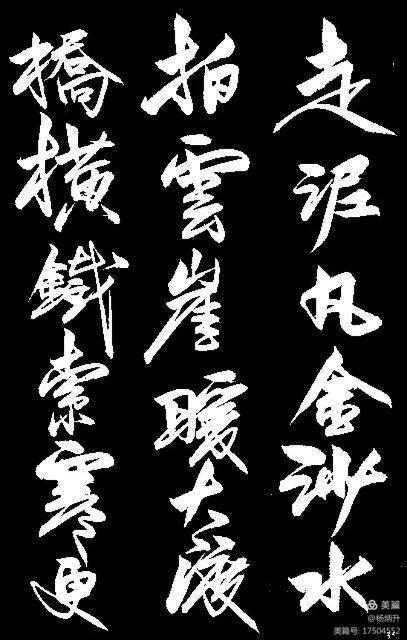 走泥丸金沙水
拍雲崖暖大渡
橋橫鐵索寒更
美篇
@杨炳升
美篇号: 17504552